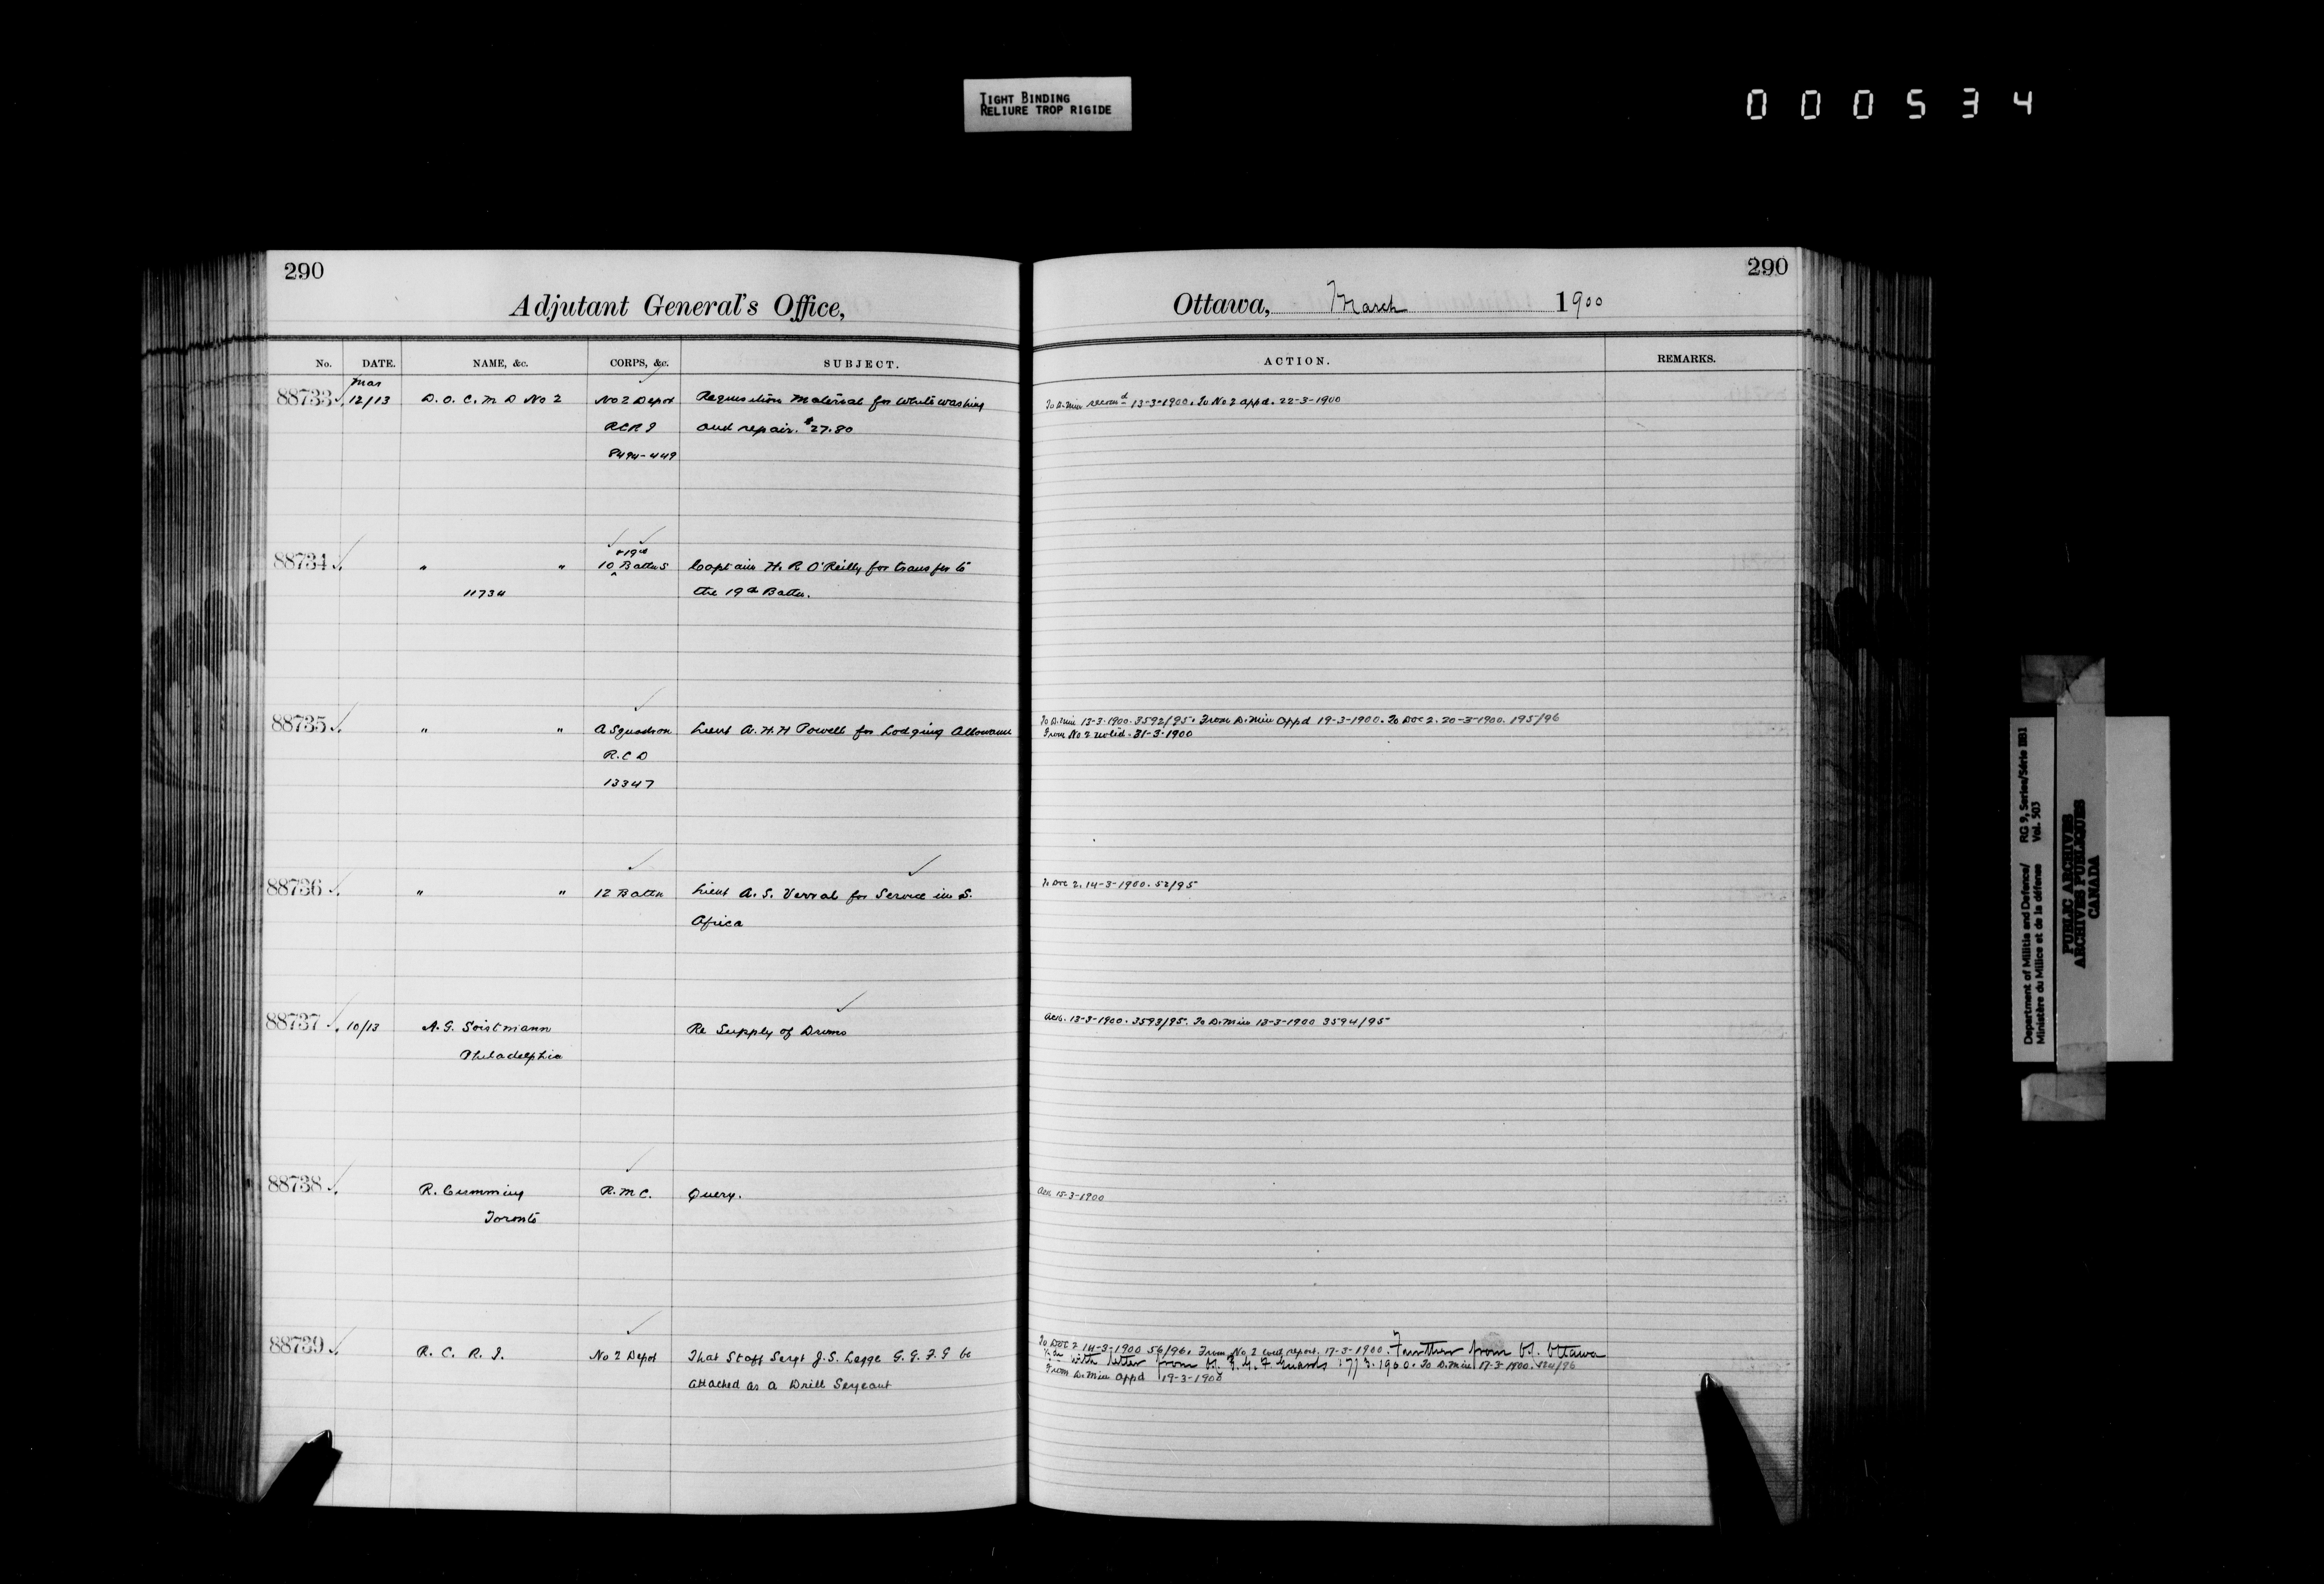 TIGHT BINDING
RELIURE TROP RIGIDE
000534
290
Adjutant General's Office,
No. DATE. NAME, &c. CORPS, &c. SUBJECT.
Mar
88733 12/13 D. O. C. M D No 2 No 2 Depot Requisition Material for Whitewashing
RCRI and repair. $27.80
8494-449
+19th
88734 " " 10 Battns Captain H. R O'Reilly for transfer to
11734 the 19th Battn.
88735 " " A Squadron Lieut A. H. H Powell for Lodging Allowance
R.C D
13347
88736 " " 12 Battn Lieut A. S. Verral for Service in S.
Africa
88737 10/13 A. G. Soistmann Re Supply of Drums
Philadelphia
88738 R. Cumming R.M C. Query.
Toronto
88739 R. C. R. I. No 2 Depot That Staff Sergt J. S. Legge G. G. F. G be
attached as a Drill Sergeant
290
Ottawa, March 1900
ACTION. REMARKS.
To D. Min recomd 13-3-1900. To No 2 appd. 22-3-1900
To D. Min 13-3-1900. 3592/95. From D. Min appd 19-3-1900. To DOC 2. 20-3-1900. 195/96
From No 2 31-3-1900
To DOC 2. 14-3-1900. 52/95
Ack. 13-3-1900. 3593/95. To D. Min 13-3-1900 3594/95
Ack 15-3-1900
To DOC 2 14-3-1900 56/96. From No 2 report, 17-3-1900. Further from Ottawa
with letter from G. F. Guards 17/3.1900. To D. Min 17-3-1900. 124/96
From D. Min appd 19-3-1900
Department of Militia and Defence/ RG 9, Series/Série IIB1
Ministère du Milice et de la défense Vol. 503
PUBLIC ARCHIVES
ARCHIVES PUBLIQUES
CANADA